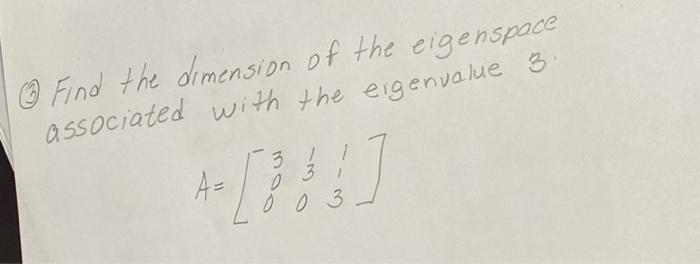 ③ Find the dimension of the eigenspace
associated with the eigenvalue 3.
A = [ 3 1 1
0 3 1
0 0 3 ]